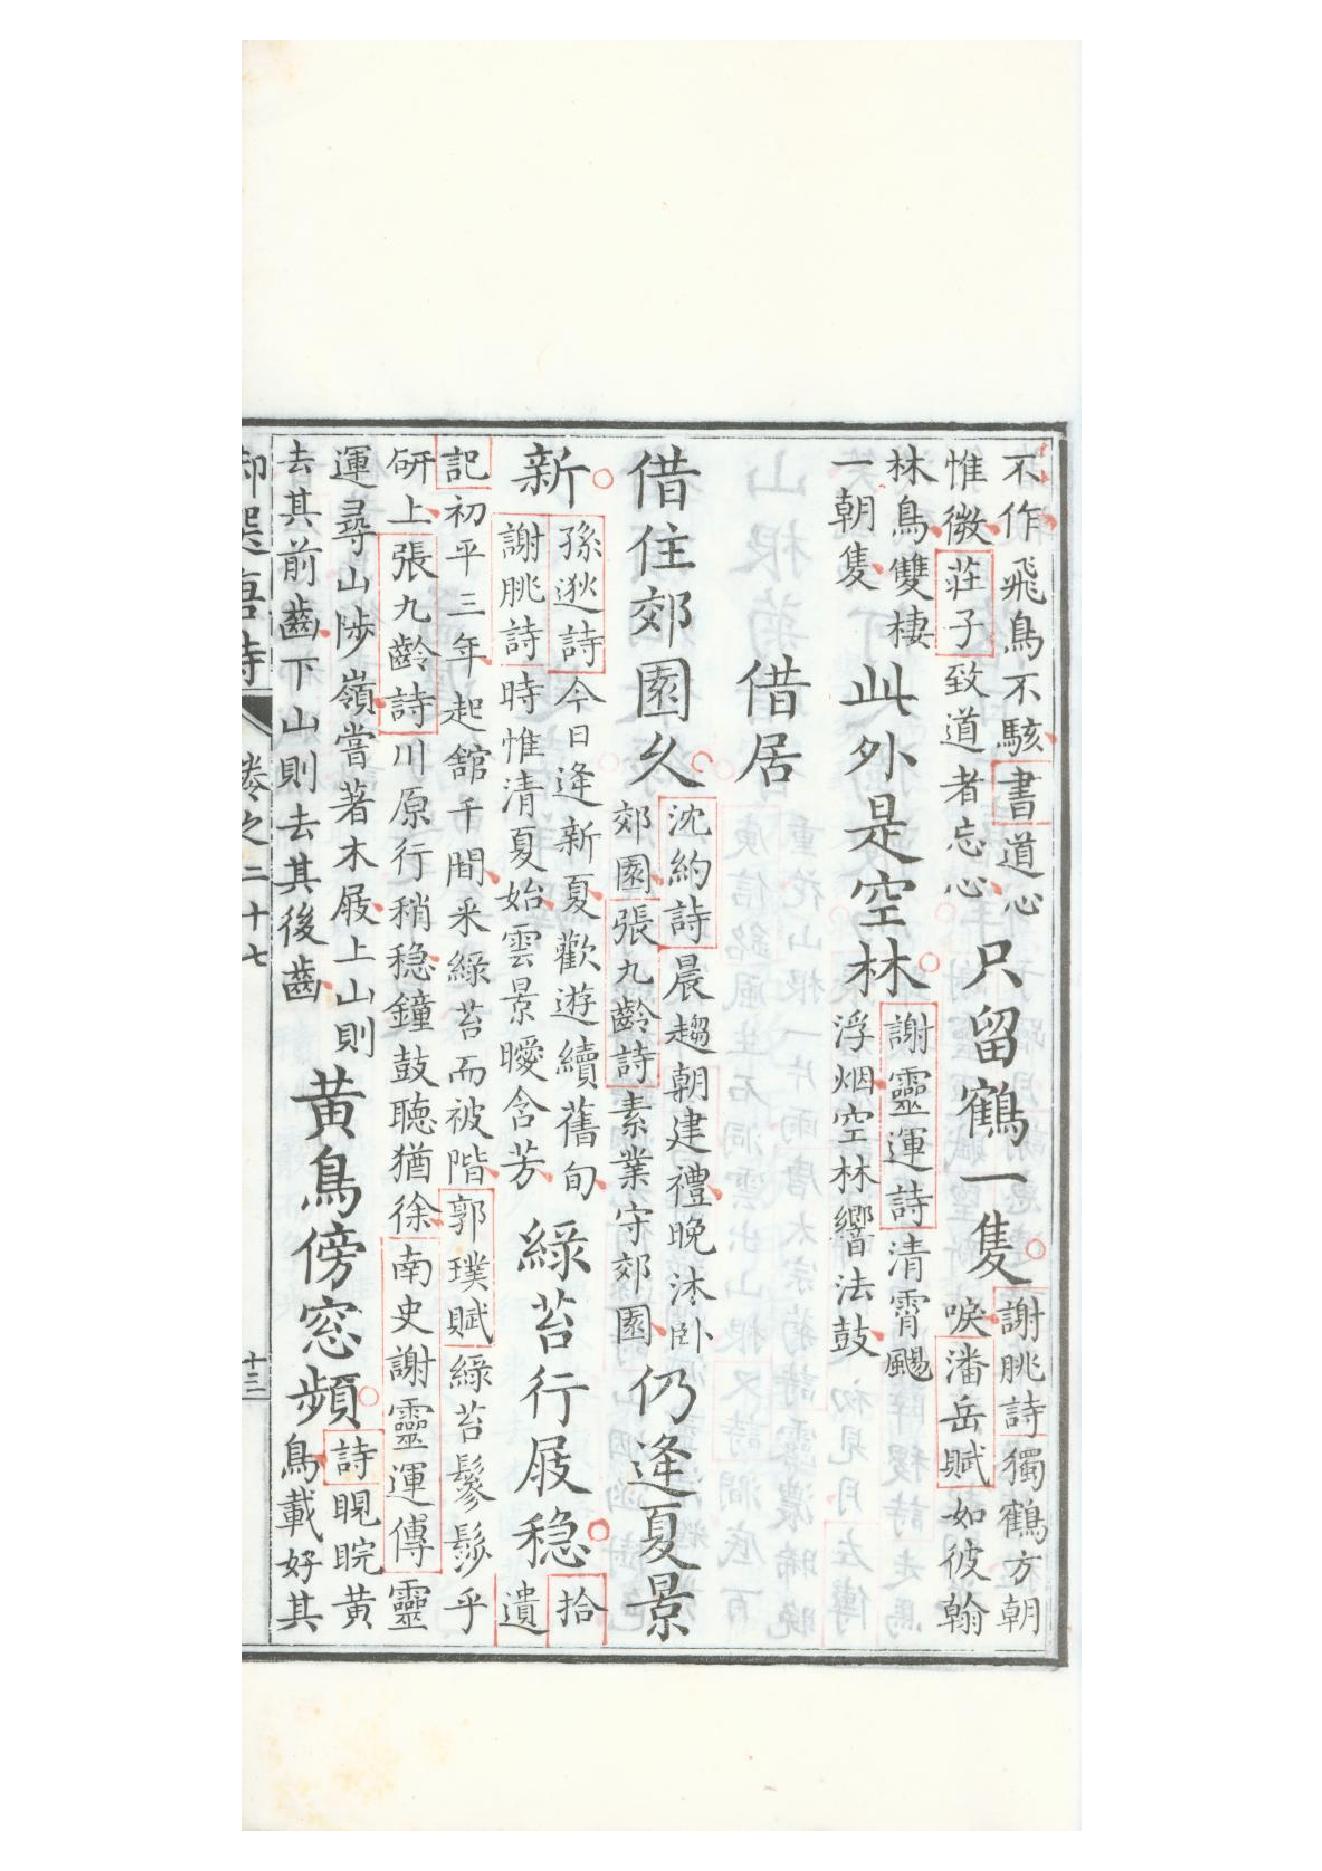 不作飛鳥不駭書道心
惟微莊子致道者忘心
只留鶴一隻
謝朓詩獨鶴方朝
唳潘岳賦如彼翰
林鳥雙棲
一朝隻
此外是空林
謝靈運詩清霄颺
浮烟空林響法鼓
借居
借住郊園久
沈約詩晨趨朝建禮晚沐卧
郊園張九齡詩素業守郊園
仍逢夏景
新
孫逖詩今日逢新夏歡遊續舊旬
謝朓詩時惟清夏始雲景曖含芳
綠苔行屐穩
拾
遺
記初平三年起舘千間采綠苔而被階郭璞賦綠苔鬖髿乎
研上張九齡詩川原行稍穩鐘鼓聽猶徐南史謝靈運傳靈
運尋山陟嶺嘗著木屐上山則
去其前齒下山則去其後齒
黃鳥傍窓頻
詩睍睆黃
鳥載好其
御選唐詩
卷之二十七
十三